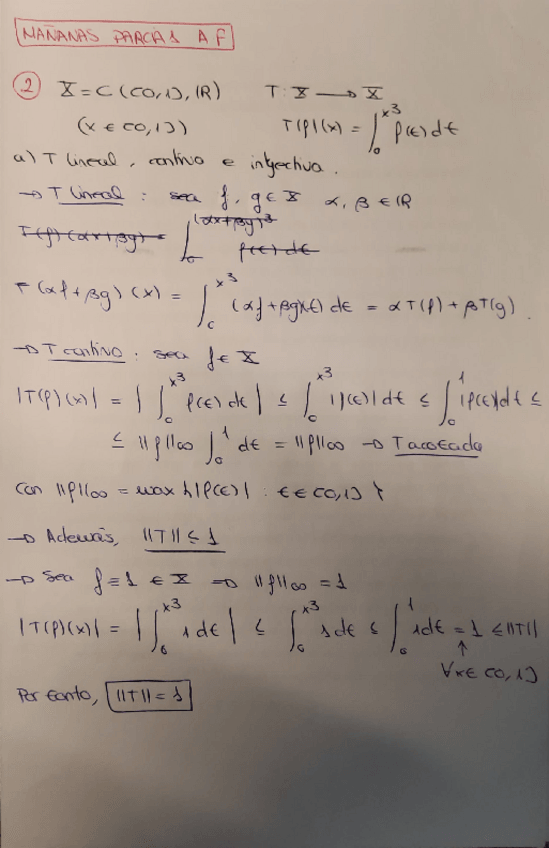 MAÑANAS PARCIAL AF
② X = C([0,1], ℝ) T: X → X
(x ∈ [0,1]) T(f)(x) = ∫₀^{x³} f(t)dt
a) T lineal, continuo e inyectiva.
→ T lineal: sea f, g ∈ X α, β ∈ ℝ
T(f)(αx+βy) = ∫₀^{(αx+βy)³} f(t)dt
T(αf+βg)(x) = ∫₀^{x³} (αf+βg)(t)dt = αT(f)+βT(g).
→ T continuo: sea f ∈ X
|T(f)(x)| = |∫₀^{x³} f(t)dt| ≤ ∫₀^{x³} |f(t)|dt ≤ ∫₀^1 |f(t)|dt ≤
≤ ||f||∞ ∫₀^1 dt = ||f||∞ → T acotado
con ||f||∞ = max{|f(t)| : t ∈ [0,1]}
→ Además, ||T|| ≤ 1
→ Sea f ≡ 1 ∈ X ⇒ ||f||∞ = 1
|T(f)(x)| = |∫₀^{x³} 1dt| ≤ ∫₀^{x³} 1dt ≤ ∫₀^1 1dt = 1 ≤ ||T||
↑
∀x ∈ [0,1]
Por tanto, ||T|| = 1